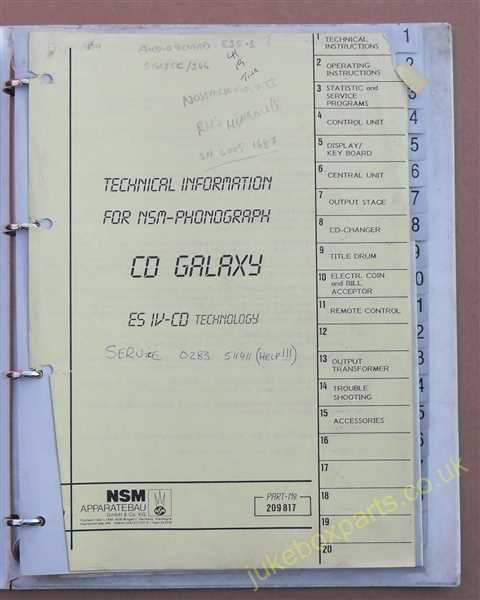 AUDIO BOARD - ES5-1
NOSTALGIA II
SN 6005 1687
TECHNICAL INFORMATION
FOR NSM-PHONOGRAPH
CD GALAXY
ES IV-CD TECHNOLOGY
SERVICE 0283 511411 (HELP!!!)
NSM
APPARATEBAU
GmbH & Co. KG
PART-No
209 817
1 TECHNICAL
INSTRUCTIONS
2 OPERATING
INSTRUCTIONS
3 STATISTIC and
SERVICE
PROGRAMS
4 CONTROL UNIT
5 DISPLAY/
KEY BOARD
6 CENTRAL UNIT
7 OUTPUT STAGE
8 CD-CHANGER
9 TITLE DRUM
10 ELECTR. COIN
and BILL
ACCEPTOR
11 REMOTE CONTROL
12
13 OUTPUT
TRANSFORMER
14 TROUBLE
SHOOTING
15 ACCESSORIES
16
17
18
19
20
1
2
3
4
5
6
7
8
9
jukeboxparts.co.uk